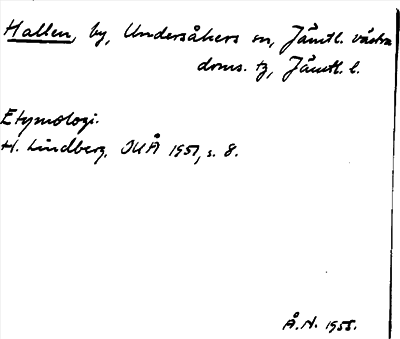 Hallen, by, Undersåkers sn, Jämtl. västra
doms. tg, Jämtl. l.
Etymologi.
H. Lindberg, OUÅ 1951, s. 8.
Å.N. 1955.